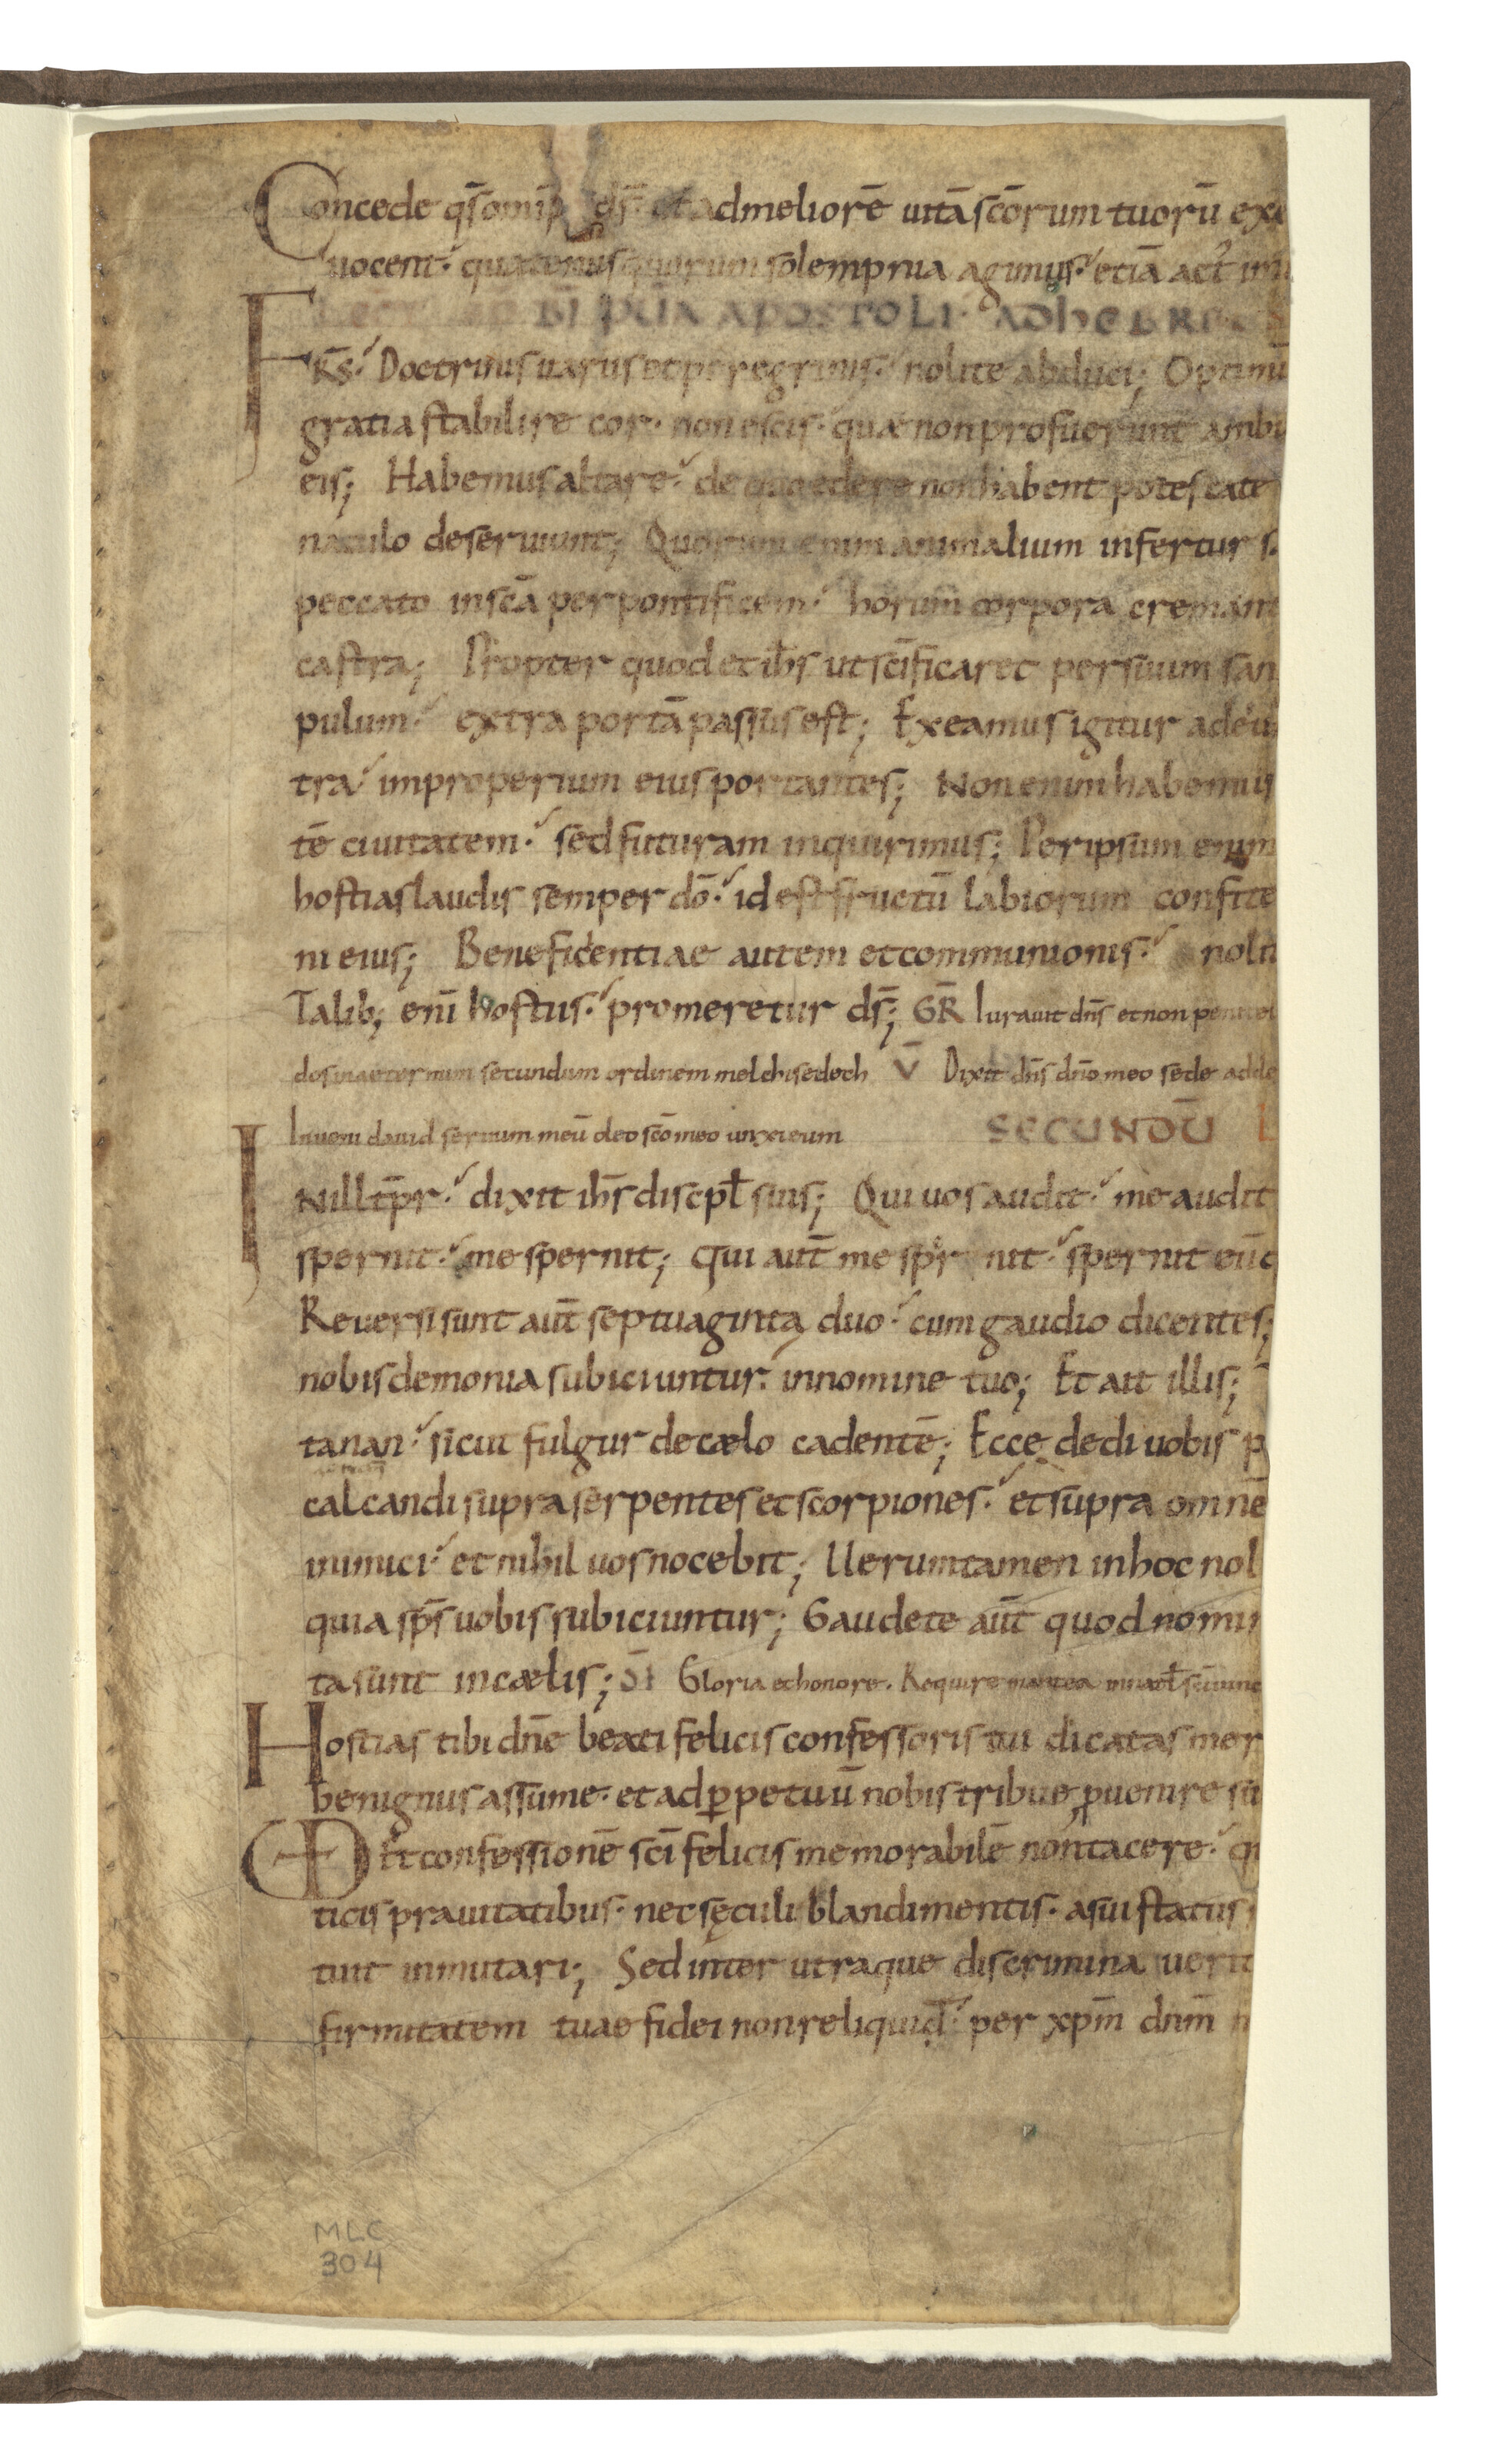 Concede qs̄ omīp ds̄ ut ad meliorē uitā scōrum tuorū exe
uocent· quatenus quorum solempnia agimus· etiā act' imi
BĪ PULĪ APOSTOLI· AD HEBREOS
FRS̄· Doctrinis uariis et peregrinis· nolite abduci; Optimū
gratia stabilire cor· non escis· quae non profuerunt ambu
eis; Habemus altare· de quo edere non habent potestate
naculo deseruiunt; Quorum enim animalium infertur s
peccato in scā per pontificem· horum corpora cremant
castra; Propter quod et ihs̄ ut scīficaret per suum san
pulum· extra portā passus est; Exeamus igitur ad eū
tra· improperium eius portantes; Non enim habemus
tē ciuitatem· sed futuram inquirimus; Per ipsum enim
hostias laudis semper dō· id est fructū labiorum confite
ni eius; Beneficentiae autem et communionis· nolit
Talib; enī hostiis· promeretur ds̄; GR̄ Iurauit dn̄s et non penitet
dos in aeternum secundum ordinem melchisedech V̄ Dixit dn̄s dn̄o meo sede adde
Inueni dauid seruum meū oleo scō meo unxi eum SECUNDŪ L
IN ILL tp̄r· dixit ihs̄ discipl̄ suis; Qui uos audit· me audit
spernit· me spernit; qui aut̄ me spernit· spernit eū q
Reuersi sunt aut̄ septuaginta duo· cum gaudio dicentes;
nobis demonia subiciuntur· in nomine tuo; Et ait illis;
tanan· sicut fulgur de caelo cadentē; Ecce dedi uobis p
calcandi supra serpentes et scorpiones· et supra omnē
inimici· et nihil uos nocebit; Uerumtamen in hoc nol
quia sps̄ uobis subiciuntur; Gaudete aut̄ quod nomin
ta sunt in caelis; Gloria et honore. Require
Hostias tibi dn̄e beati felicis confessoris tui dicatas mer
benignus assume· et ad perpetuū nobis tribue puenire su
UD Et confessionē scī felicis memorabilē non tacere· qi
ticis prauitatibus· nec sęculi blandimentis· a sui status
tuit inmutari; Sed inter utraque discrimina uerit
firmitatem tuae fidei non reliquid· per xpm̄ dnm̄ n
MLC
304